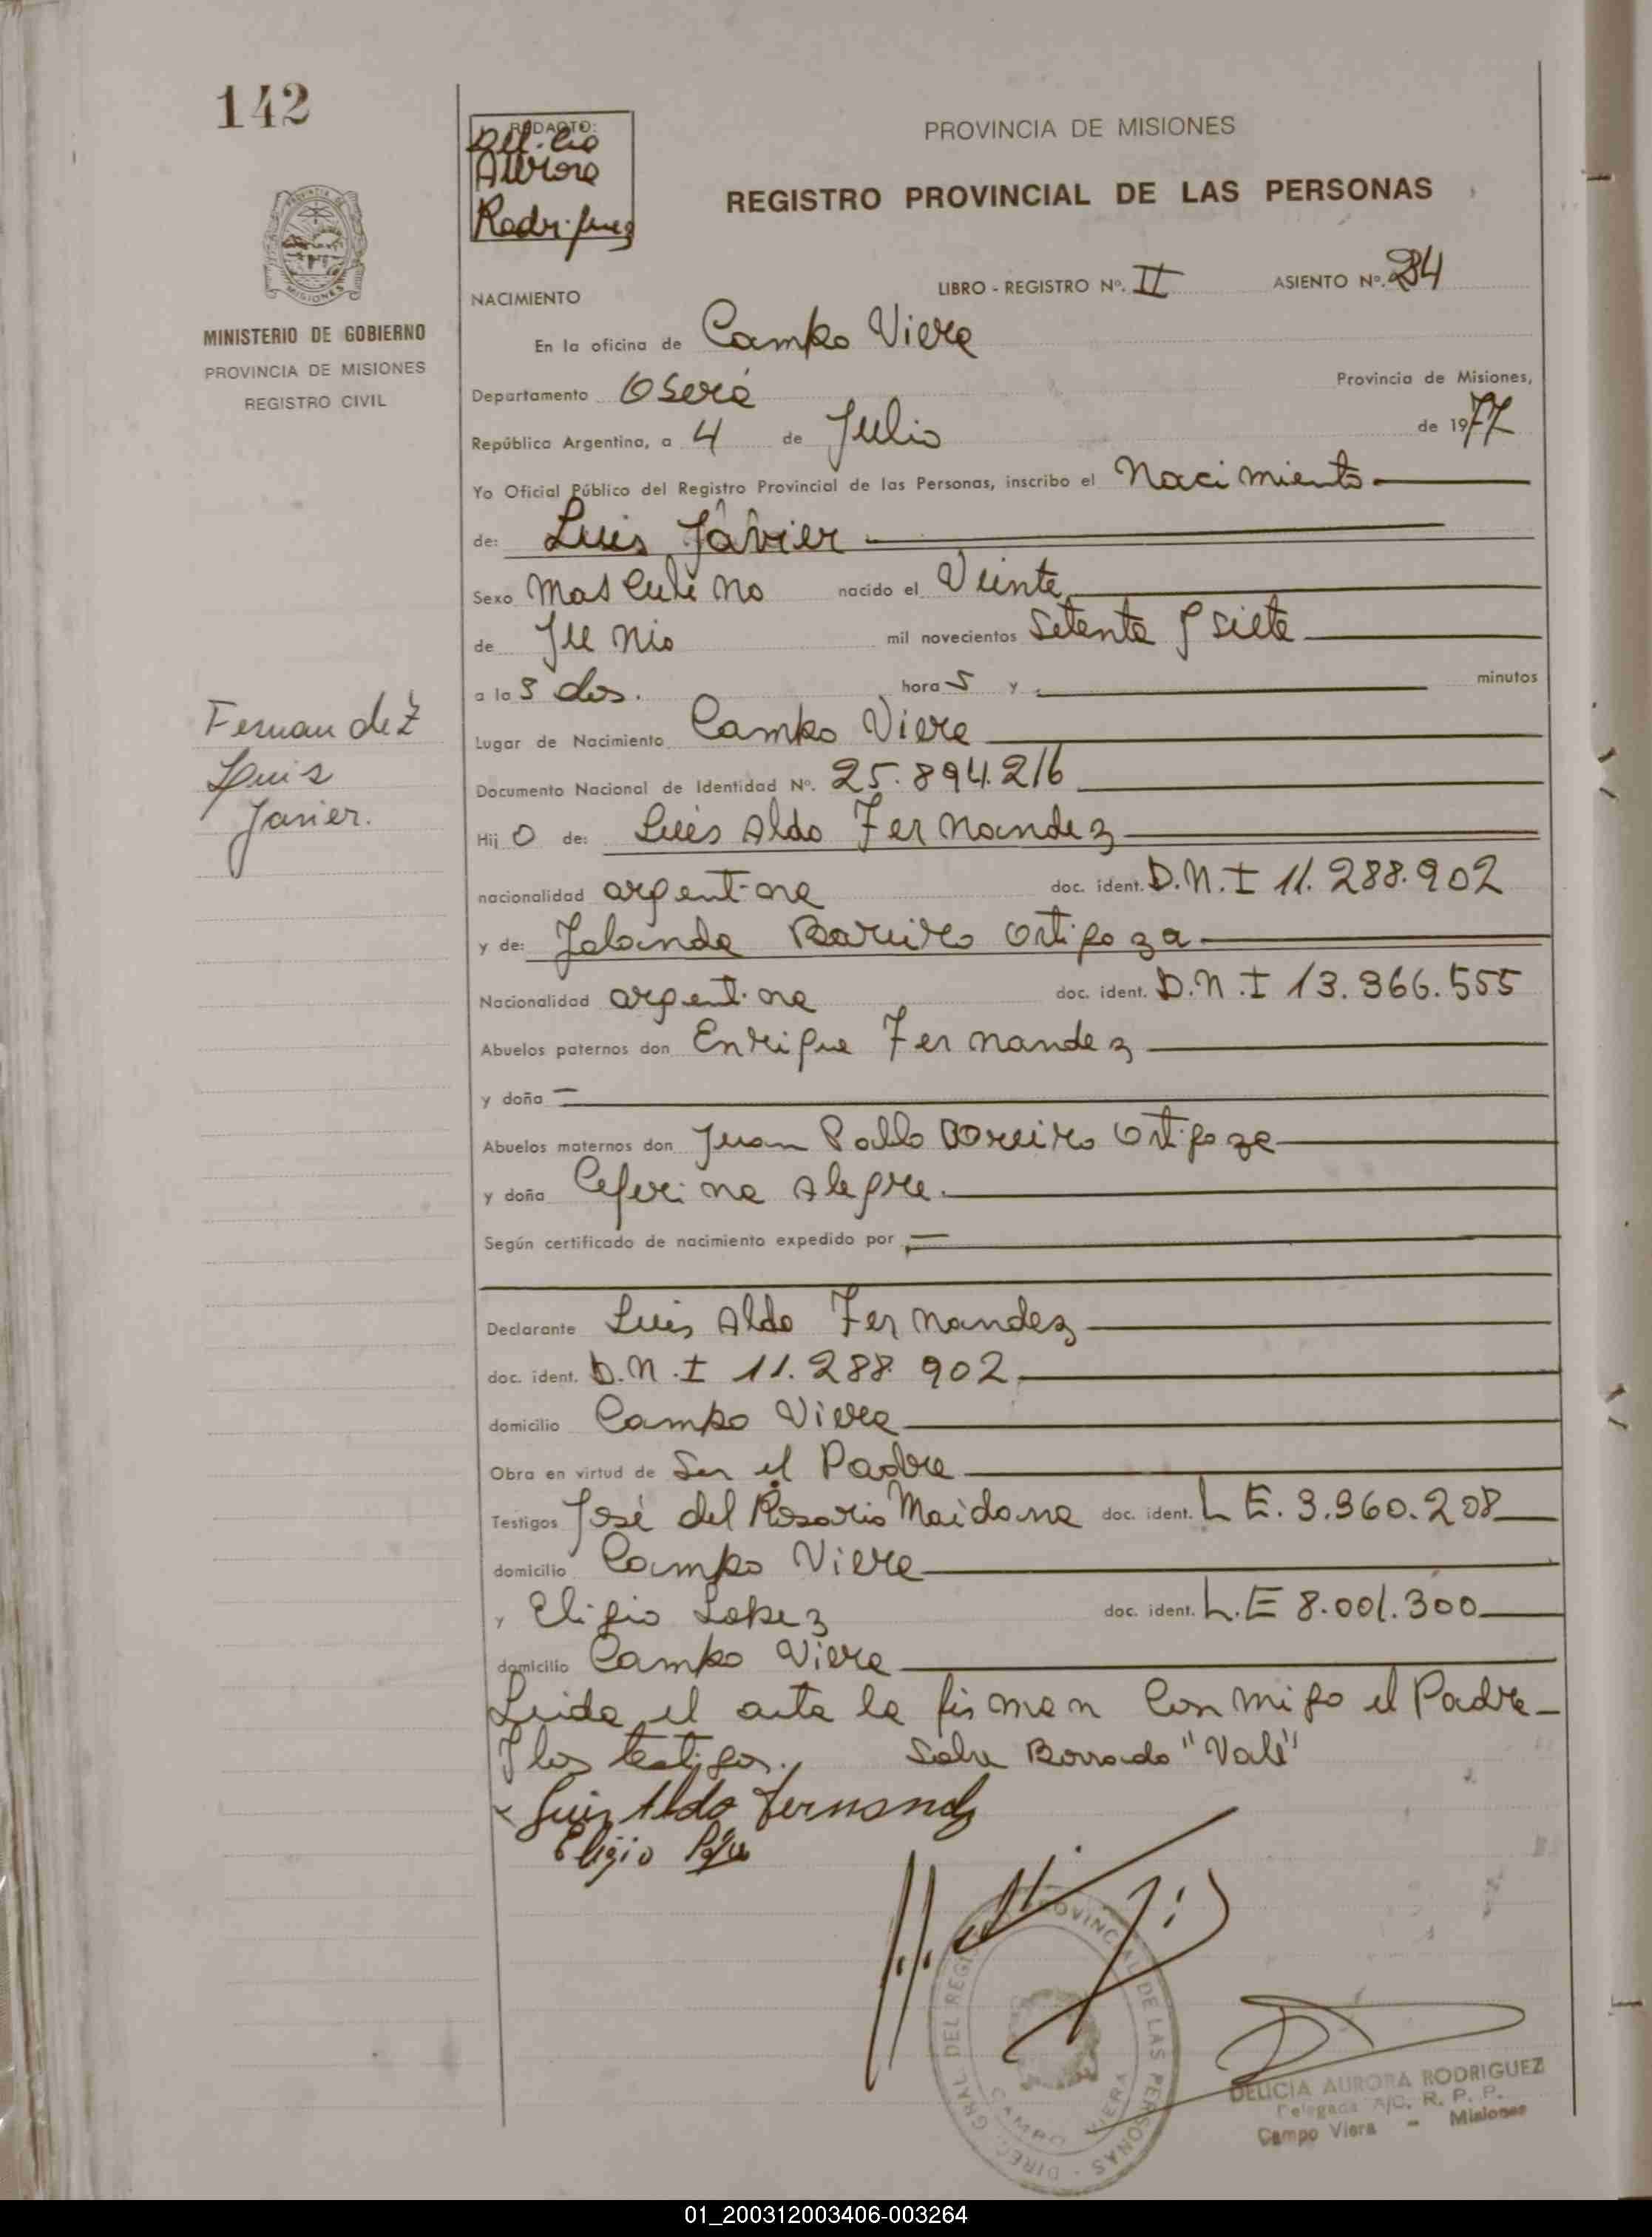 142
REDACTO:
Delicia
Aurora
Rodriguez
PROVINCIA DE MISIONES
REGISTRO PROVINCIAL DE LAS PERSONAS
MINISTERIO DE GOBIERNO
PROVINCIA DE MISIONES
REGISTRO CIVIL
NACIMIENTO
LIBRO - REGISTRO Nº. II ASIENTO Nº. 284
En la oficina de Campo Viera
Departamento Oberá Provincia de Misiones,
República Argentina, a 4 de Julio de 1977
Yo Oficial Público del Registro Provincial de las Personas, inscribo el Nacimiento
de: Luis Javier
Sexo Masculino nacido el Veinte
de Junio mil novecientos Setenta y siete
a las dos. horas y minutos
Fernandez
Luis
Javier.
Lugar de Nacimiento Campo Viera
Documento Nacional de Identidad Nº. 25.894.216
Hijo de: Luis Aldo Fernandez
nacionalidad argentina doc. ident. D.N.I 11.288.902
y de: Jolanda Barreiro Ortigoza
Nacionalidad argentina doc. ident. D.N.I 13.366.555
Abuelos paternos don Enrique Fernandez
y doña
Abuelos maternos don Juan Pablo Borreiro Ortigoza
y doña Ceferina Alegre.
Según certificado de nacimiento expedido por
Declarante Luis Aldo Fernandez
doc. ident. D.N.I 11.288 902
domicilio Campo Viera
Obra en virtud de Ser el Padre
Testigos José del Rosario Maidana doc. ident. L E. 3.360.208
domicilio Campo Viera
y Eligio Lopez doc. ident. L.E 8.001.300
domicilio Campo Viera
Leida el acta la firman conmigo el Padre
y los testigos. Sobre Borrado "Vale"
Luis Aldo Fernandz
Eligio
DIREC. GRAL. DEL REGISTRO PROVINCIAL DE LAS PERSONAS
CAMPO VIERA
DELICIA AURORA RODRIGUEZ
Delegada A/C. R. P. P.
Campo Viera - Misiones
01_200312003406-003264